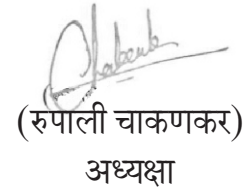 (रुपाली चाकणकर)
अध्यक्षा